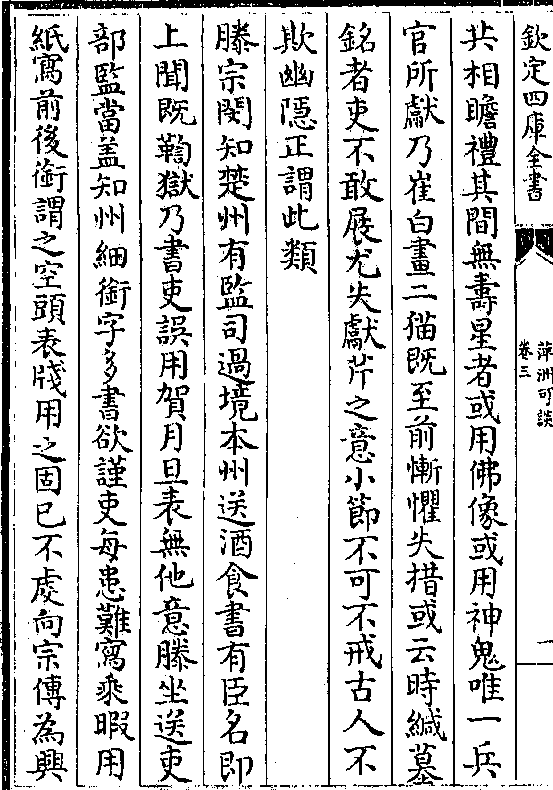 欽定四庫全書
萍洲可談
卷三
一
共相瞻禮其間無壽星者或用佛像或用神鬼唯一兵
官所獻乃崔白畫二猫既至前慚懼失措或云時緘墓
銘者吏不敢展尤失獻芹之意小節不可不戒古人不
欺幽隱正謂此類
滕宗閔知楚州有監司過境本州送酒食書有臣名即
上聞既鞫獄乃書吏誤用賀月旦表無他意滕坐送吏
部監當盖知州細銜字多書欲謹吏每患難寫乘暇用
紙寫前後銜謂之空頭表牋用之固已不處向宗傳為興